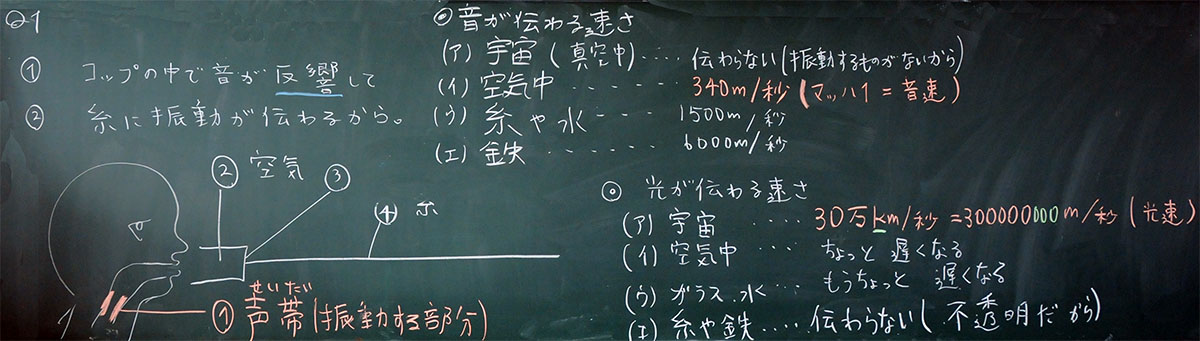 Q1
① コップの中で音が反響して
② 糸に振動が伝わるから。
② 空気
③
④ 糸
せいたい
① 声帯(振動する部分)
◎音が伝わる速さ
(ア) 宇宙(真空中)‥‥ 伝わらない(振動するものがないから)
(イ) 空気中 ‥‥‥ 340m/秒(マッハ1=音速)
(ウ) 糸や水 ‥‥‥ 1500m/秒
(エ) 鉄 ‥‥‥ 6000m/秒
◎ 光が伝わる速さ
(ア) 宇宙 ‥‥ 30万km/秒=300000000m/秒(光速)
(イ) 空気中 ‥‥ ちょっと遅くなる
(ウ) ガラス 水 ‥‥ もうちょっと 遅くなる
(エ) 糸や鉄‥‥伝わらない(不透明だから)